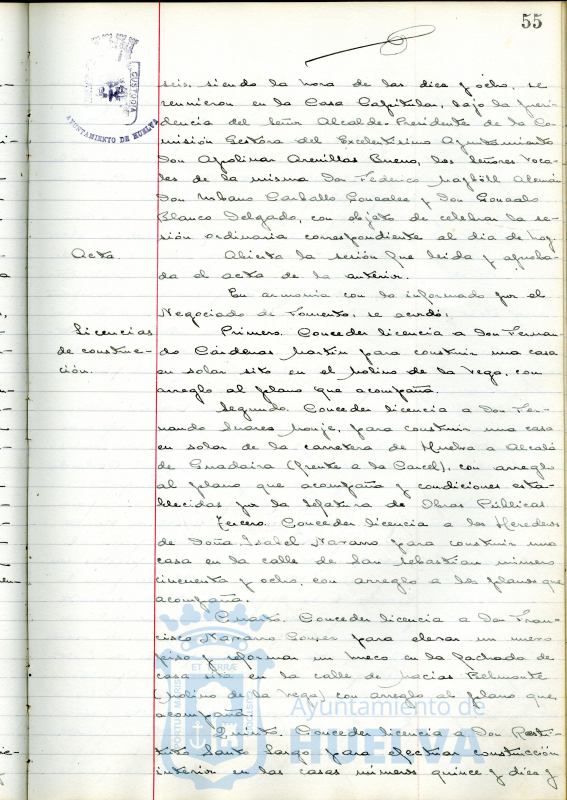 55
CUSTODIA
AYUNTAMIENTO DE HUELVA
seis, siendo la hora de las diez y ocho, se
reunieron en la Casa Capitular, bajo la presi-
dencia del Señor Alcalde-Presidente de la Co-
misión Gestora del Excelentísimo Ayuntamiento
Don Apolinar Arenillas Bueno, los Señores Voca-
les de la misma Don Federico Alemán
Don Urbano Carballo Gonzalez y Don Gonzalo
Blanco Delgado, con objeto de celebrar la se-
sión ordinaria correspondiente al dia de hoy.
Acta. Abierta la sesión fue leida y aproba-
da el acta de la anterior.
En armonia con lo informado por el
Negociado de Fomento, se acordó:
Licencias Primero. Conceder licencia a Don Fernan-
de construc- do Cárdenas Martin para construir una casa
ción. en solar sito en el Molino de la Vega, con
arreglo al plano que acompaña.
Segundo. Conceder licencia a Don Fer-
nando Suarez Monje, para construir una casa
en solar de la carretera de Huelva a Alcalá
de Guadaira (frente a la Carcel), con arreglo
al plano que acompaña y condiciones esta-
blecidas por la Jefatura de Obras Públicas.
Tercero. Conceder licencia a los Herederos
de Doña Isabel Navarro para construir una
casa en la calle de San Sebastian número
cincuenta y ocho, con arreglo a los planos que
acompaña.
Cuarto. Conceder licencia a Don Fran-
cisco Navarro para elevar un nuevo
piso y reformar un hueco en la fachada de
casa sita en la calle de Macias Belmonte
(Molino de la Vega) con arreglo al plano que
acompaña.
Quinto. Conceder licencia a Don Resti-
tuto Santo Largo para efectuar construcción
interior en las casas números quince y diez y
Ayuntamiento de
HUELVA